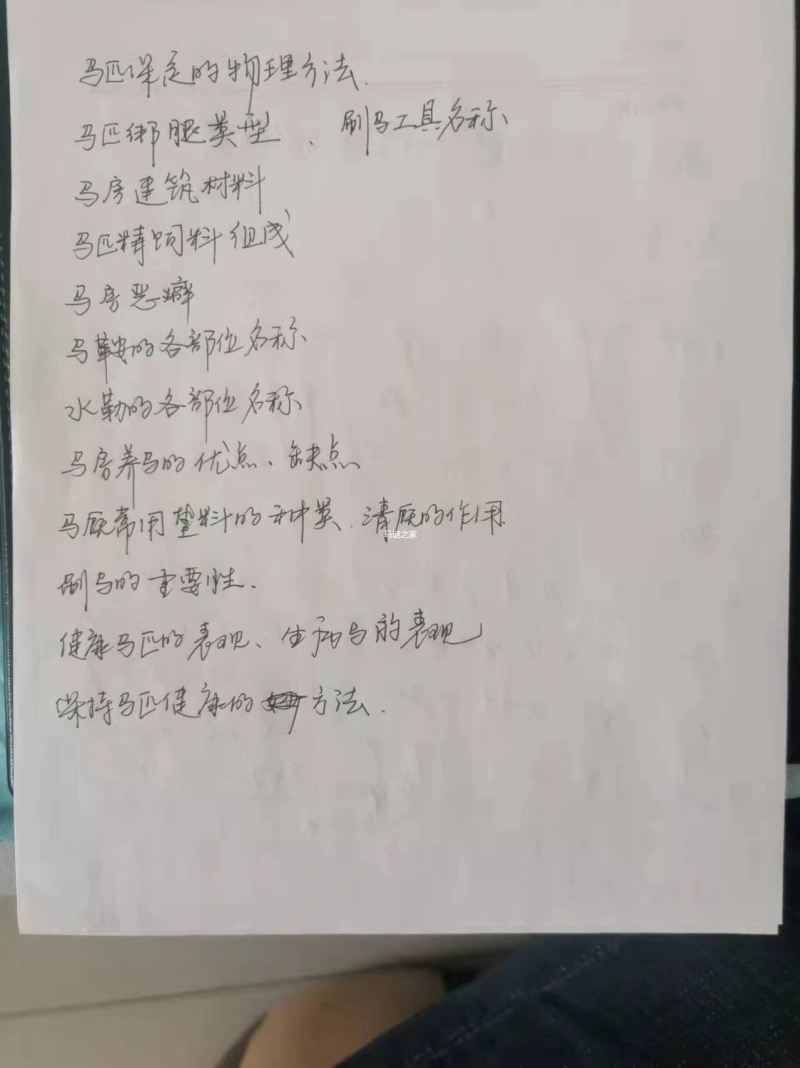 马匹保定的物理方法.
马匹绑腿类型、刷马工具名称
马房建筑材料
马匹精饲料组成
马房恶癖
马鞍的各部位名称
水勒的各部位名称
马房养马的优点、缺点
马厩常用垫料的种类.清厩的作用
马谜之家
刷马的重要性.
健康马匹的表现、生病马的表现
保持马匹健康的方法.